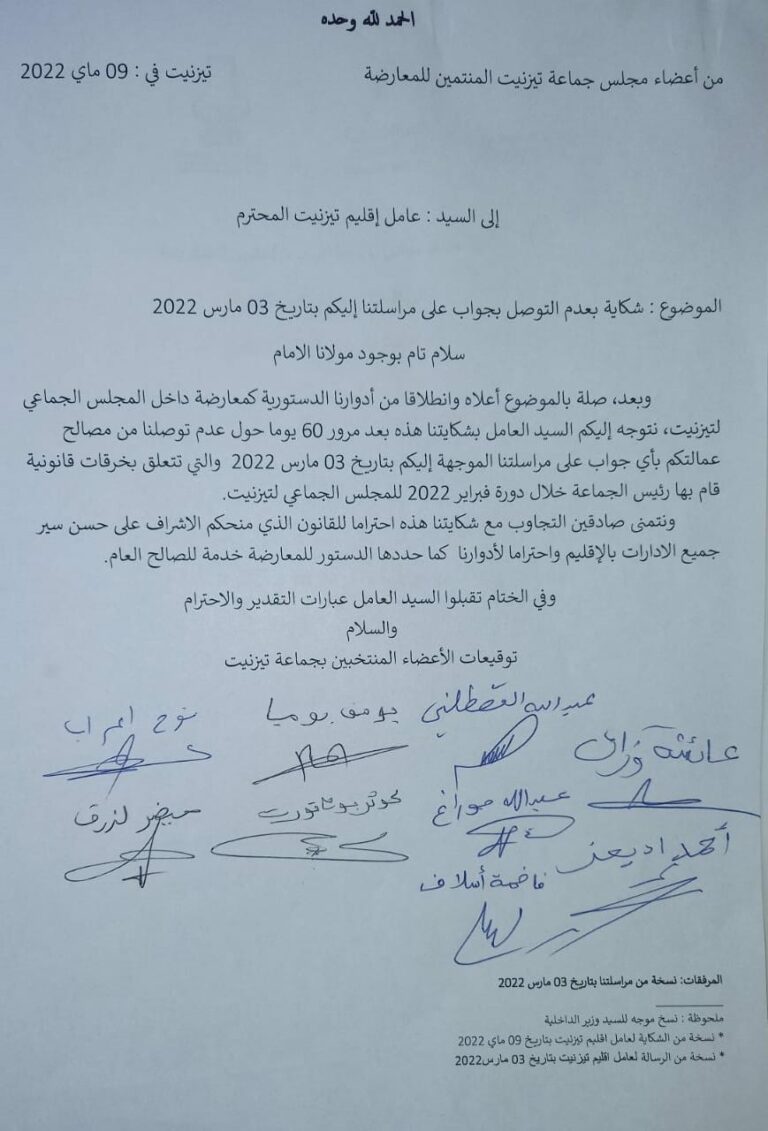 الحمد لله وحده
من أعضاء مجلس جماعة تيزنيت المنتمين للمعارضة
تيزنيت في : 09 ماي 2022
إلى السيد : عامل إقليم تيزنيت المحترم
الموضوع : شكاية بعدم التوصل بجواب على مراسلتنا إليكم بتاريخ 03 مارس 2022
سلام تام بوجود مولانا الامام
وبعد، صلة بالموضوع أعلاه وانطلاقا من أدوارنا الدستورية كمعارضة داخل المجلس الجماعي
لتيزنيت، نتوجه إليكم السيد العامل بشكايتنا هذه بعد مرور 60 يوما حول عدم توصلنا من مصالح
عمالتكم بأي جواب على مراسلتنا الموجهة إليكم بتاريخ 03 مارس 2022 والتي تتعلق بخرقات قانونية
قام بها رئيس الجماعة خلال دورة فبراير 2022 للمجلس الجماعي لتيزنيت.
ونتمنى صادقين التجاوب مع شكايتنا هذه احتراما للقانون الذي منحكم الاشراف على حسن سير
جميع الادارات بالإقليم واحتراما لأدوارنا كما حددها الدستور للمعارضة خدمة للصالح العام.
وفي الختام تقبلوا السيد العامل عبارات التقدير والاحترام
والسلام
توقيعات الأعضاء المنتخبين بجماعة تيزنيت
عبد الله القصطلني
يوسف بوميا
نوح اعراب
عائشة
عبد الله
كوثر
لزرق
أحمد اديعز
فاطمة أسلاف
المرفقات: نسخة من مراسلتنا بتاريخ 03 مارس 2022
ملحوظة : نسخ موجه للسيد وزير الداخلية
* نسخة من الشكاية لعامل اقليم تيزنيت بتاريخ 09 ماي 2022
* نسخة من الرسالة لعامل اقليم تيزنيت بتاريخ 03 مارس2022